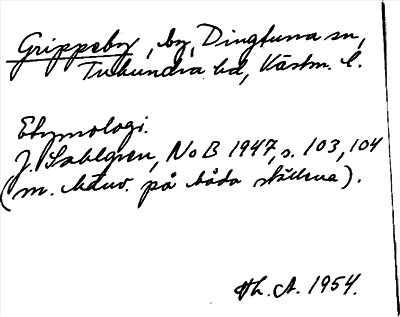 Grippeby, by, Dingtuna sn,
Tuhundra hd, Västm. l.
Etymologi.
J. Sahlgren, NoB 1947, s. 103, 104
(m. hänv. på båda ställena).
Th. A. 1954.